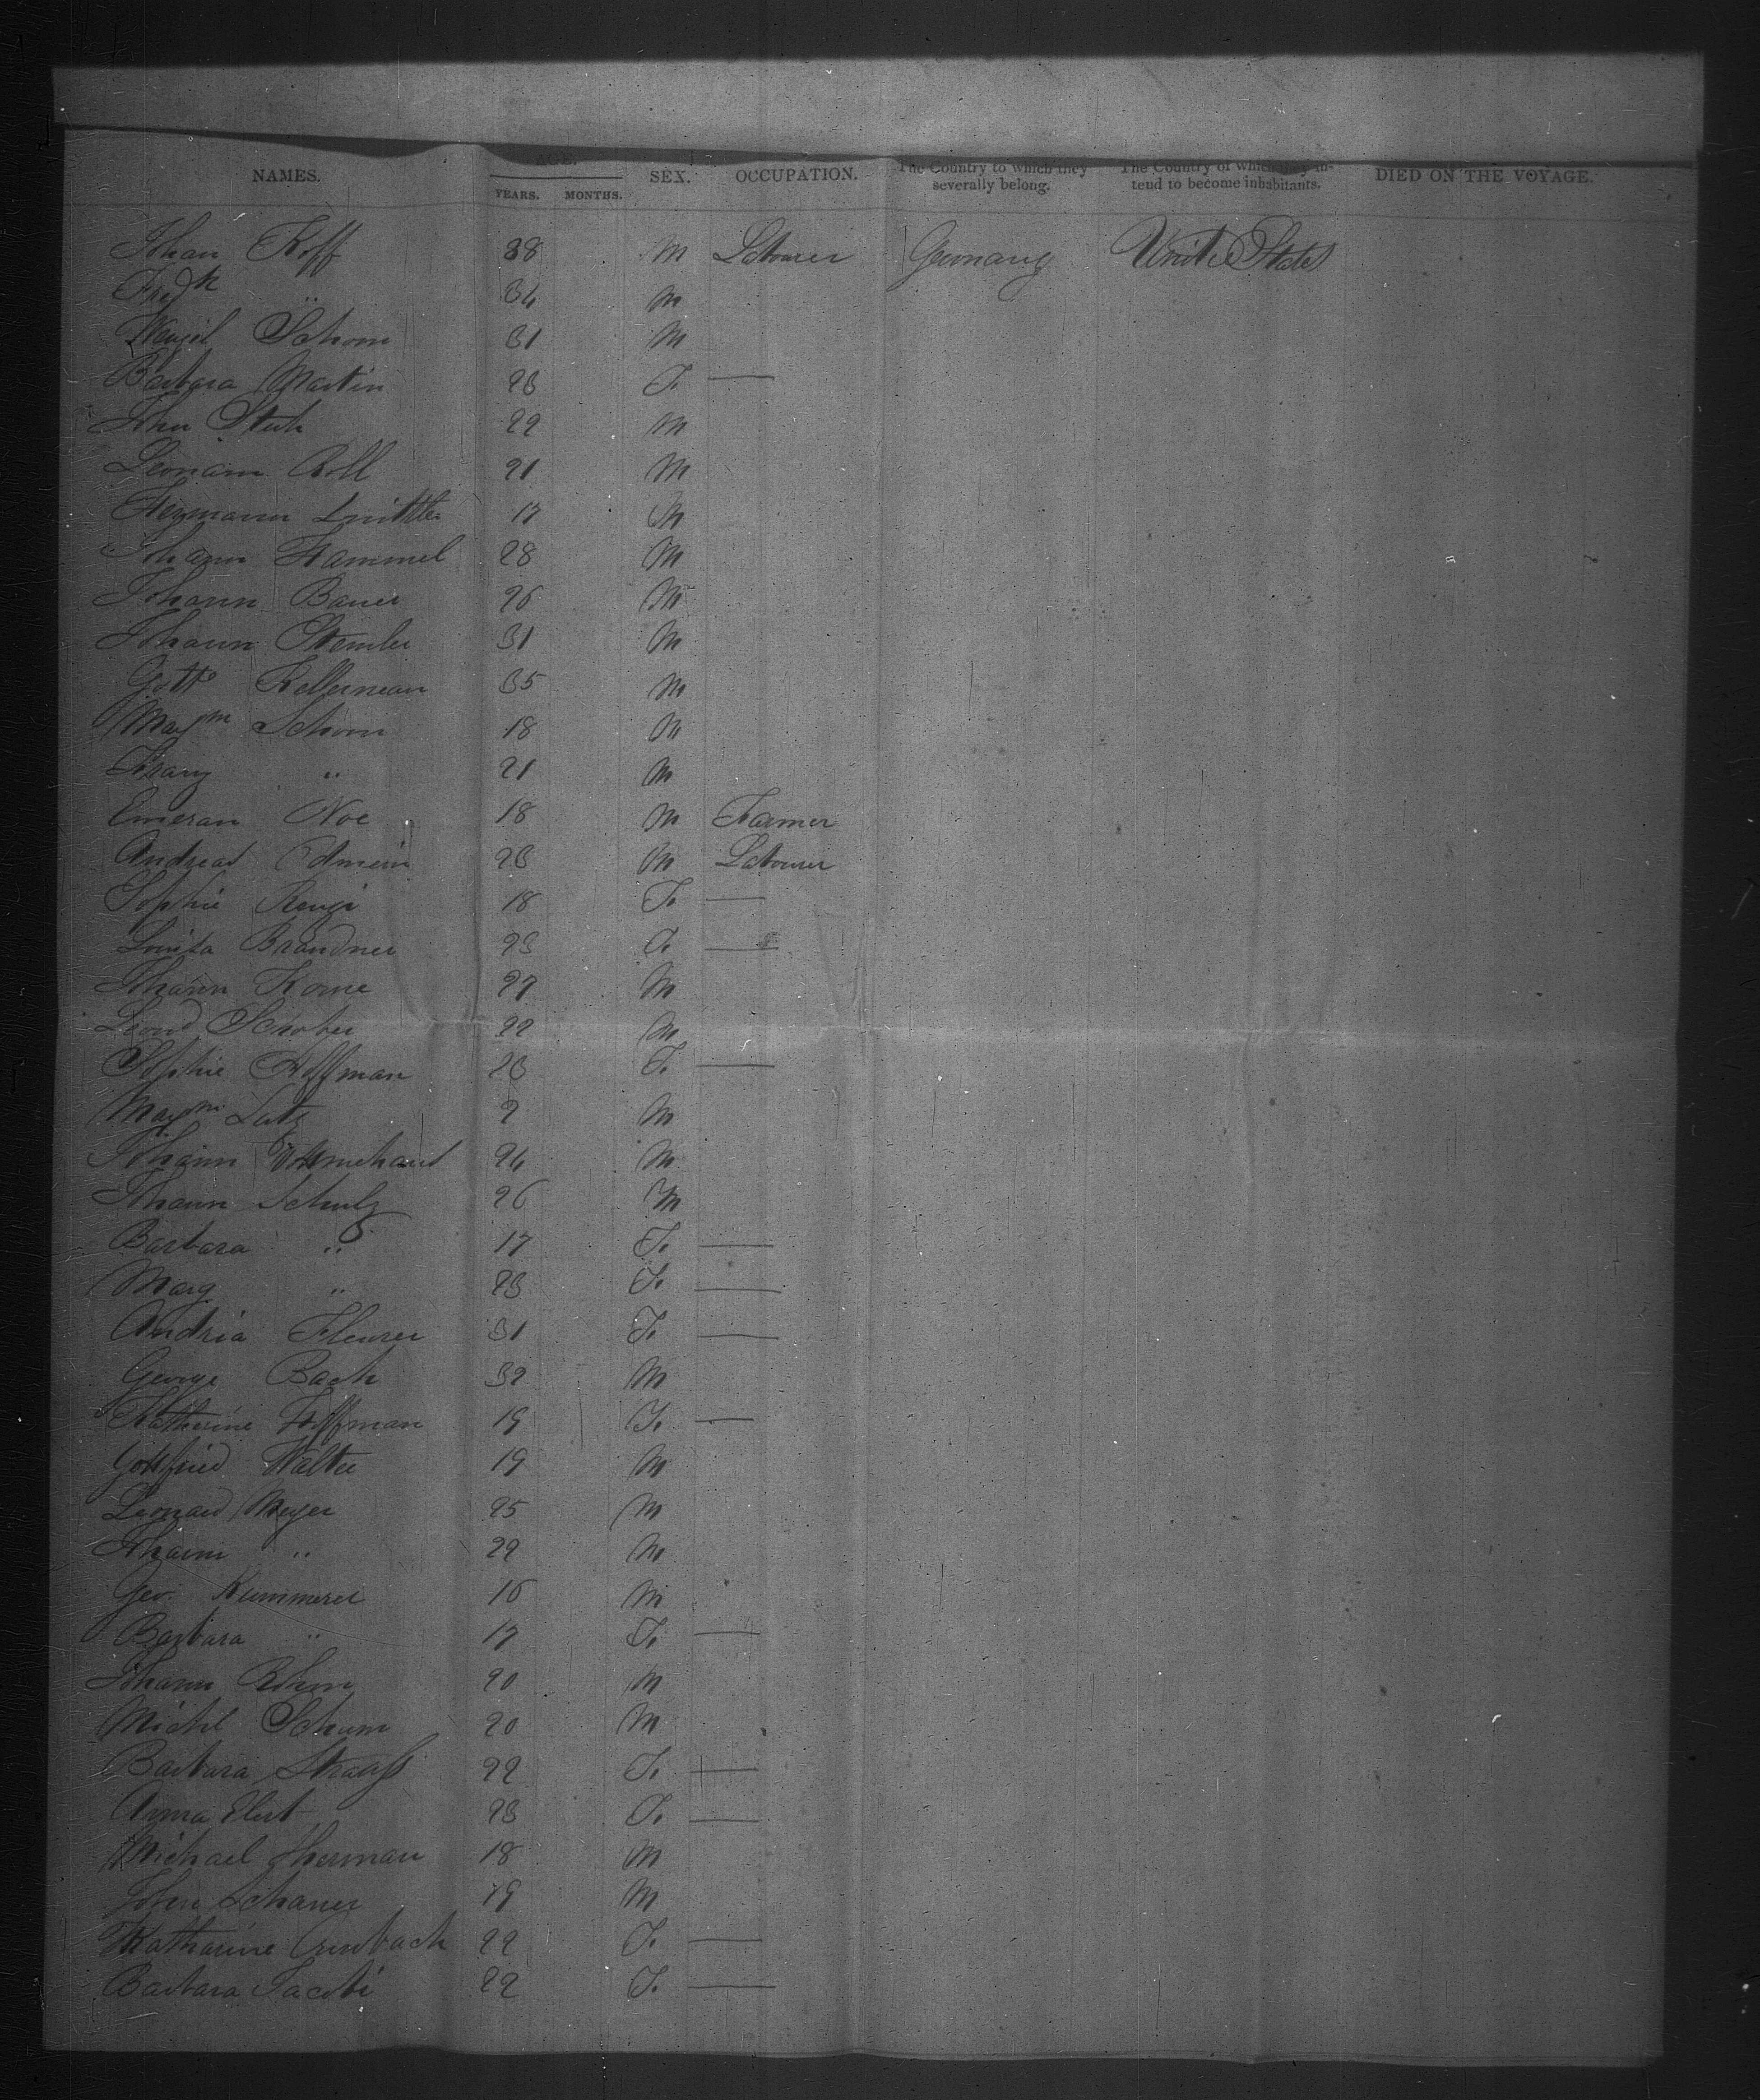 NAMES. AGE. SEX. OCCUPATION. The Country to which they The Country of which they in- DIED ON THE VOYAGE.
YEARS. MONTHS. severally belong. tend to become inhabitants.
Johan Hoff 38 M Labourer Germany United States
Fredk " 34 M
Schom 31 M
Barbara Martin 23 F. —
John 22 M
Roll 21 M
Hermann 17 M
Johann Hammel 28 M
Johann Bauer 26 M
Johann 31 M
Gottf Kellerman 35 M
Maxm Schom 18 M
Franz " 21 M
Emeran Noe 18 M Farmer
Andreas 23 M Labourer
Sophie 18 F. —
Brandner 23 F. —
Johann Horne 27 M
Leond Schober 22 M
Sophie Hoffman 23 F. —
Maxm Lutz 2 M
Johann 24 M
Johann Schulz 26 M
Barbara " 17 F. —
Marg " 23 F. —
Andria 31 F. —
George Bach 32 M
Katherine Hoffman 19 F. —
Gottfried Walter 19 M
Leonard Meyer 25 M
Johann " 22 M
Geo. Kummerer 16 M
Barbara " 17 F. —
Johann 20 M
Michl Schum 20 M
Barbara Strauß 22 F. —
Anna Ebert 23 F. —
Michael Sherman 18 M
John Schauer 19 M
Katharine 22 F. —
Barbara Jacobi 22 F. —